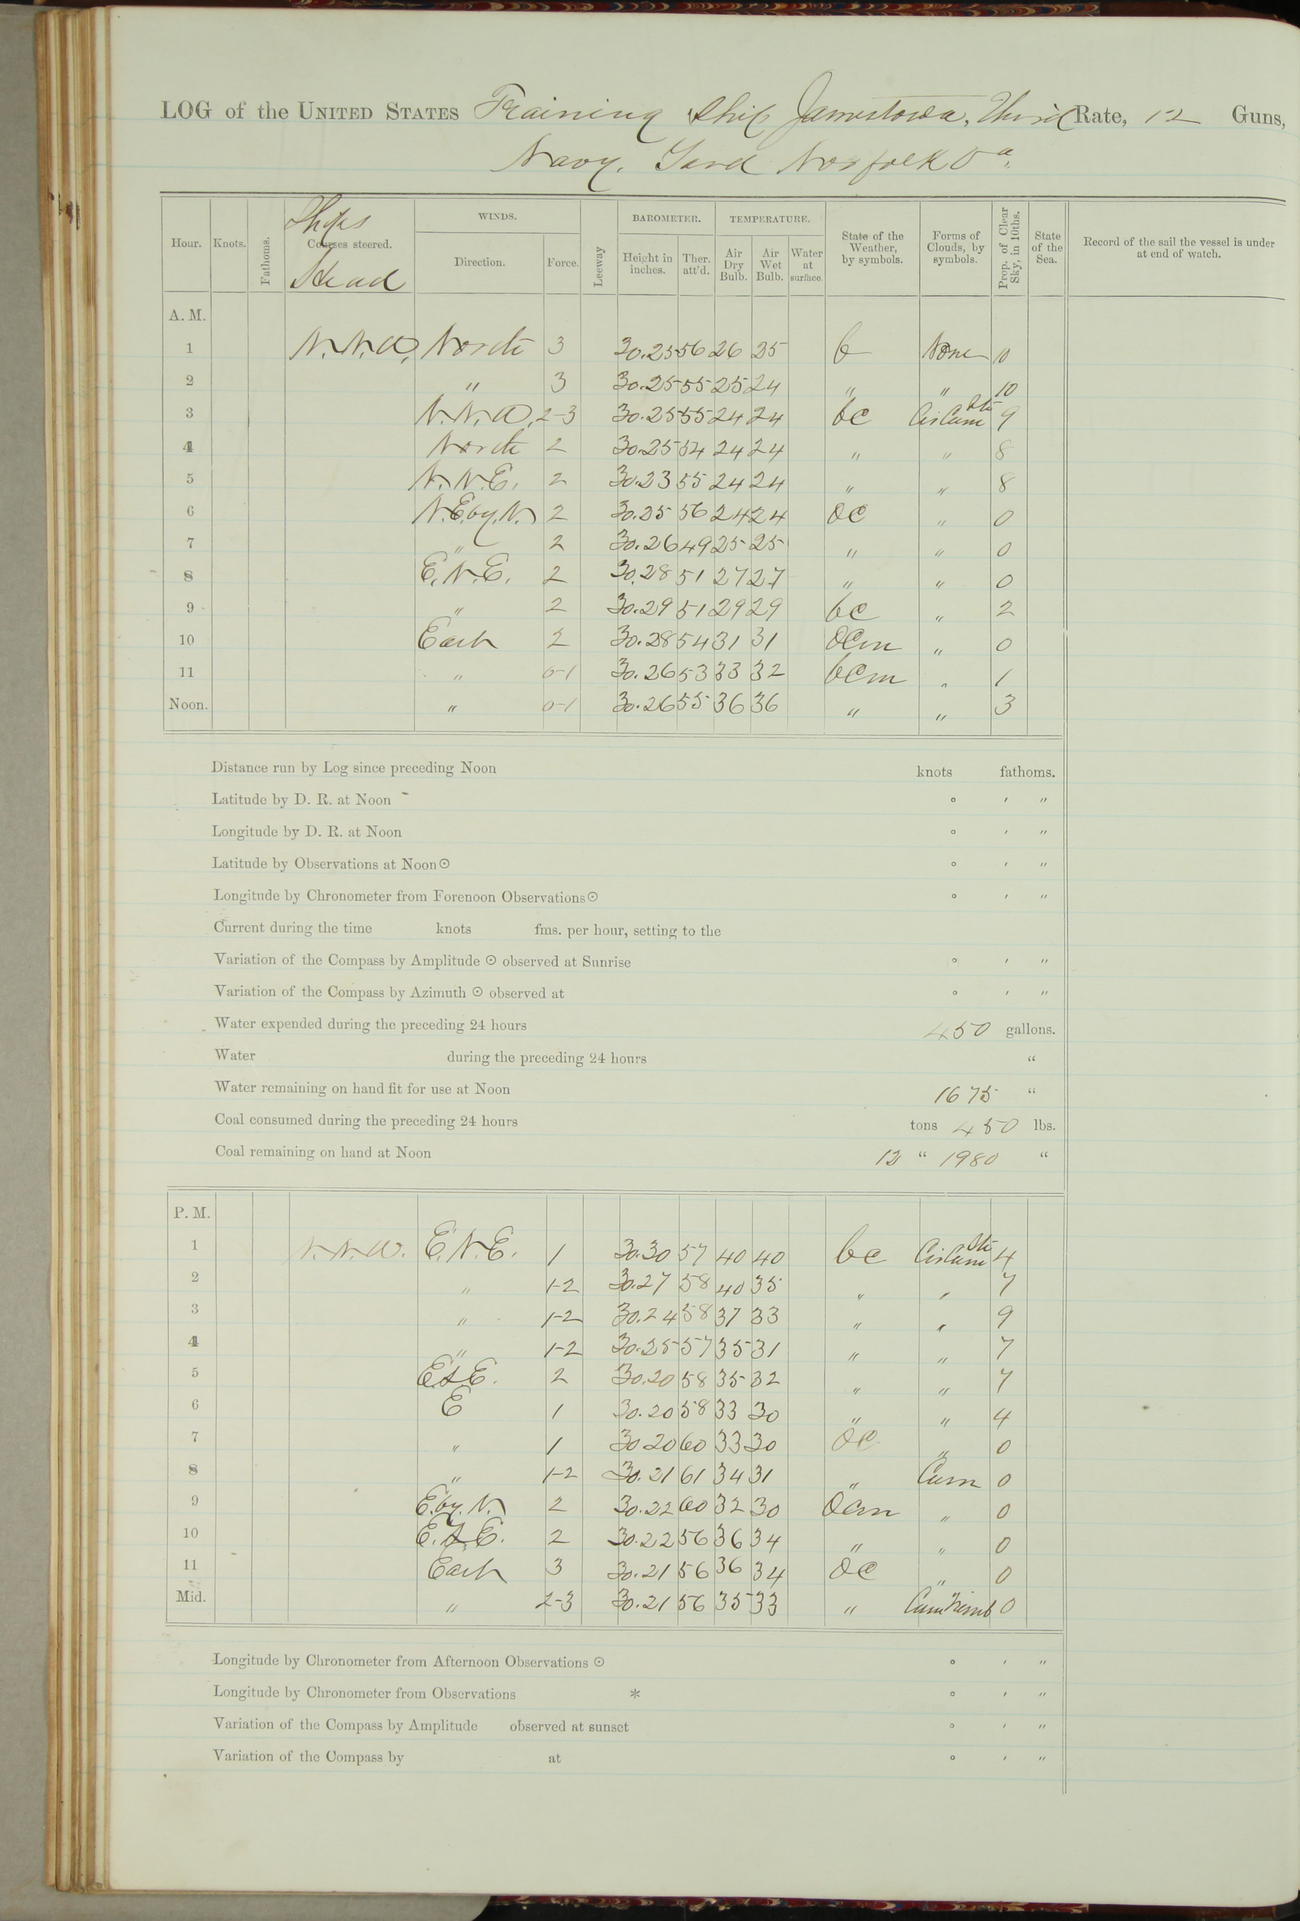 LOG of the UNITED STATES Training Ship Jamestown, Third Rate, 12 Guns,
Navy Yard Norfolk Va.
Hour. Knots. Fathoms. Ships Courses steered. Head WINDS. Direction. Force. Leeway BAROMETER. Height in inches. Ther. att'd. TEMPERATURE. Air Dry Bulb. Air Wet Bulb. Water at surface. State of the Weather, by symbols. Forms of Clouds, by symbols. Prop. of Clear Sky, in 10ths. State of the Sea. Record of the sail the vessel is under at end of watch.
A. M.
1 N.N.W. North 3 30.25 56 26 25 b None 10
2 " 3 30.25 55 25 24 " " 10
3 N.N.W. 2-3 30.25 55 24 24 bc Cir Cum Str 9
4 North 2 30.25 54 24 24 " " 8
5 N.N.E. 2 30.23 55 24 24 " " 8
6 N.E. by N. 2 30.25 56 24 24 OC " 0
7 " 2 30.26 49 25 25 " " 0
8 E.N.E. 2 30.28 51 27 27 " " 0
9 " 2 30.29 51 29 29 bc " 2
10 East 2 30.28 54 31 31 OCm " 0
11 " 0-1 30.26 53 33 32 bcm " 1
Noon. " 0-1 30.26 55 36 36 " " 3
Distance run by Log since preceding Noon knots fathoms.
Latitude by D. R. at Noon ° ′ ″
Longitude by D. R. at Noon ° ′ ″
Latitude by Observations at Noon ☉ ° ′ ″
Longitude by Chronometer from Forenoon Observations ☉ ° ′ ″
Current during the time knots fms. per hour, setting to the
Variation of the Compass by Amplitude ☉ observed at Sunrise ° ′ ″
Variation of the Compass by Azimuth ☉ observed at ° ′ ″
Water expended during the preceding 24 hours 450 gallons.
Water during the preceding 24 hours "
Water remaining on hand fit for use at Noon 1675 "
Coal consumed during the preceding 24 hours tons 450 lbs.
Coal remaining on hand at Noon 12 " 1980 "
P. M.
1 N.N.W. E.N.E. 1 30.30 57 40 40 bc Cir Cum Str 4
2 " 1-2 30.27 58 40 35 " " 7
3 " 1-2 30.24 58 37 33 " " 9
4 " 1-2 30.25 57 35 31 " " 7
5 E.S.E. 2 30.20 58 35 32 " " 7
6 E 1 30.20 58 33 30 " " 4
7 " 1 30.20 60 33 30 OC " 0
8 " 1-2 30.21 61 34 31 " Cum 0
9 E. by N. 2 30.22 60 32 30 Ocm " 0
10 E.S.E. 2 30.22 56 36 34 " " 0
11 East 3 30.21 56 36 34 OC " 0
Mid. " 2-3 30.21 56 35 33 " Cum Nimb 0
Longitude by Chronometer from Afternoon Observations ☉ ° ′ ″
Longitude by Chronometer from Observations * ° ′ ″
Variation of the Compass by Amplitude observed at sunset ° ′ ″
Variation of the Compass by at ° ′ ″